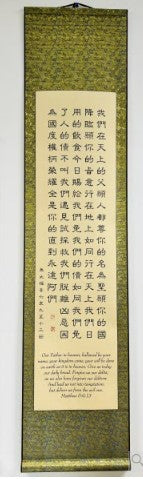 我們在天上的父願人都尊你的名為聖願你的國
降臨願你的旨意行在地上如同行在天上我們日
用的飲食今日賜給我們免我們的債如同我們免
了人的債不叫我們遇見試探救我們脫離凶惡因
為國度權柄榮耀全是你的直到永遠阿們
馬太福音六章九至十三節
Our Father in heaven, hallowed be your
name, your kingdom come, your will be done
on earth as it is in heaven. Give us today
our daily bread. Forgive us our debts,
as we also have forgiven our debtors.
And lead us not into temptation,
but deliver us from the evil one.
Matthew 6:9-13